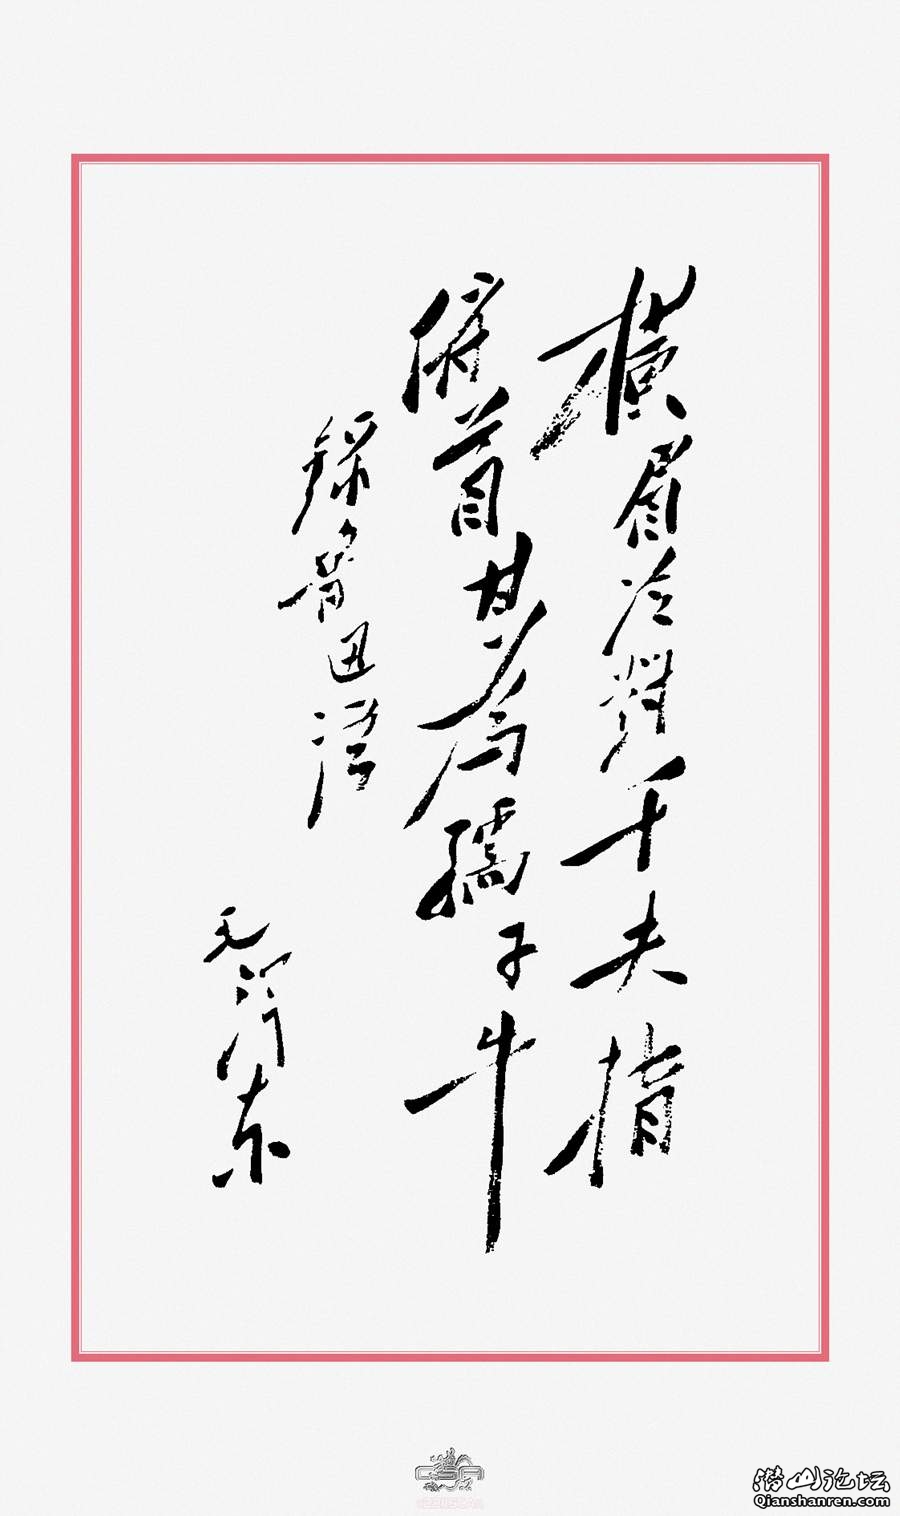 橫眉冷對千夫指
俯首甘为孺子牛
錄魯迅語
毛泽东
潜山论坛
Qianshanren.com